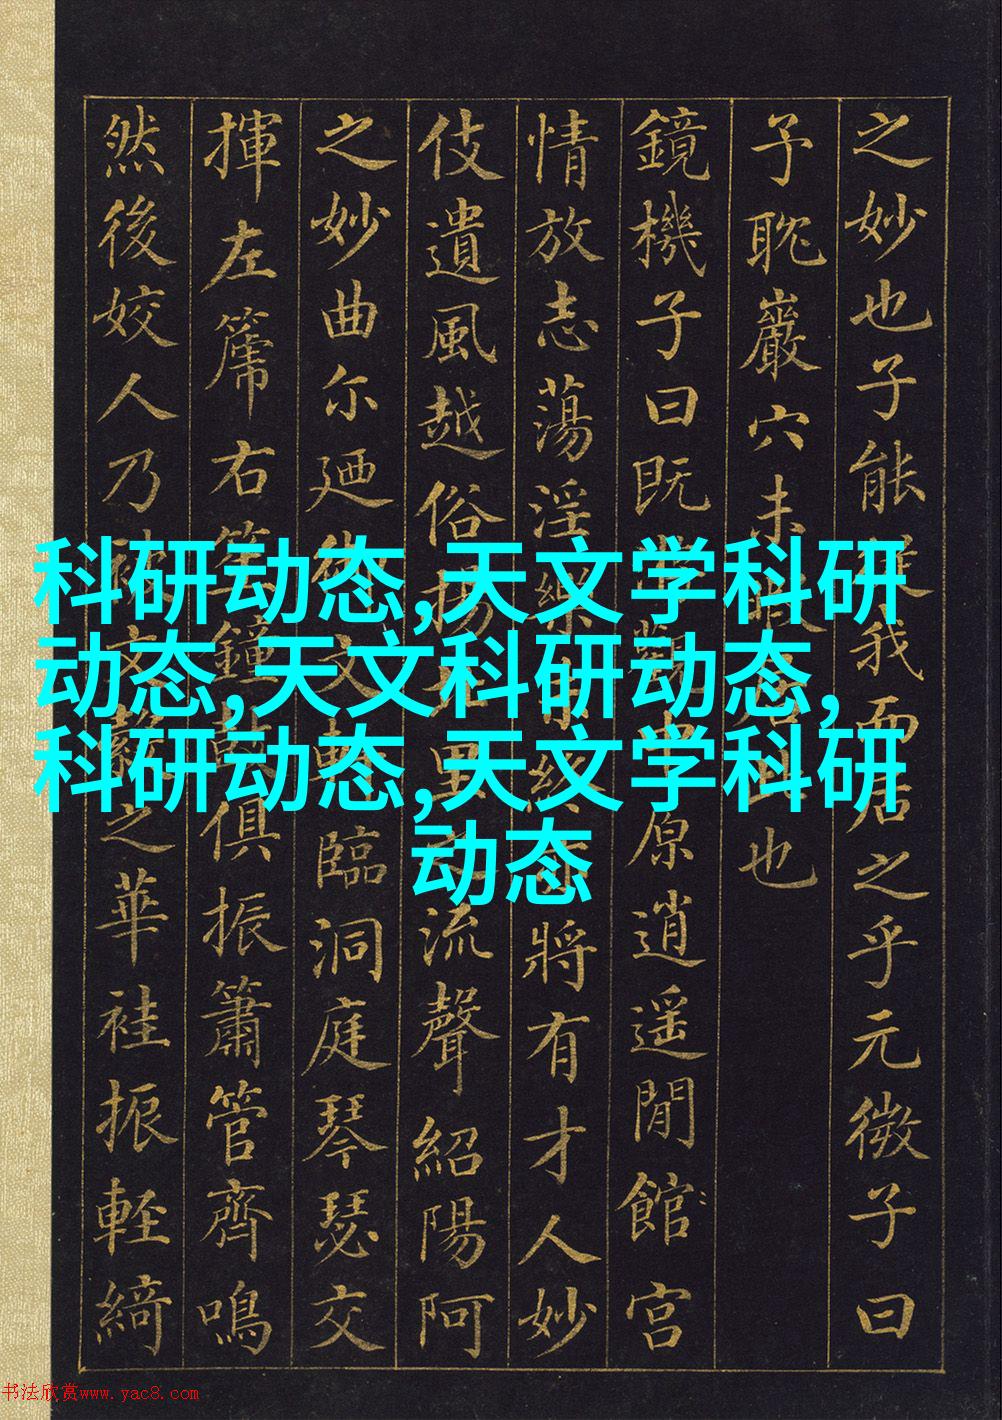 科研动态,天文学科研
动态,天文科研动态,
科研动态,天文学科研
动态
之妙也子能我而居之乎元微子曰
予耽巖穴未暇也
鏡機子曰既原逍遥閒館宮
情放志蕩淫樂終將有才人妙
伎遺風越俗揚里流聲紹陽阿
之妙曲尓廼文臨洞庭琴瑟交
揮左篪右鐘俱振簫管齊鳴
然後姣人乃文之華袿振軽綺
书法欣赏www.yac8.com